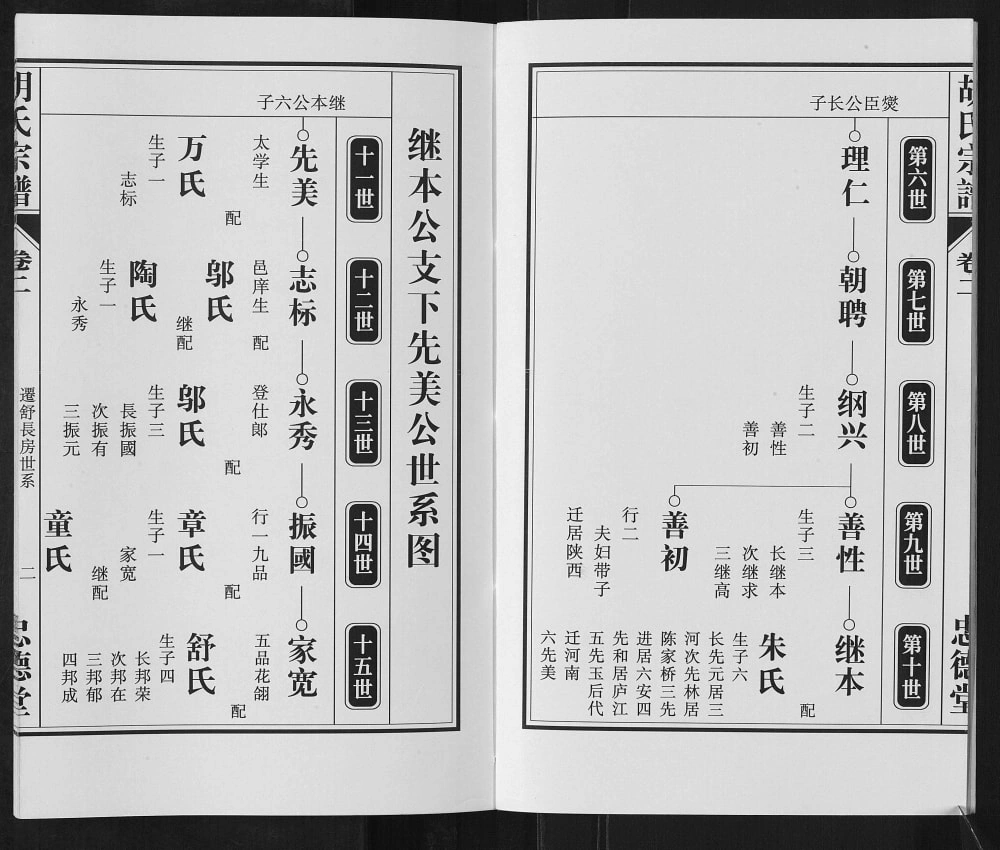 胡氏宗譜
卷二
忠德堂
燮臣公长子
第六世
理仁
第七世
朝聘
第八世
纲兴
生子二
善性
善初
第九世
善性
生子三
长继本
次继求
三继高
善初
行二
夫妇带子
迁居陕西
第十世
继本
配
朱氏
生子六
长先元居三
河次先林居
陈家桥三先
进居六安四
先和居庐江
五先玉后代
迁河南
六先美
继本公支下先美公世系图
继本公六子
十一世
先美
太学生
配
万氏
生子一
志标
十二世
志标
邑庠生
配
邬氏
继配
陶氏
生子一
永秀
十三世
永秀
登仕郎
配
邬氏
生子三
長振國
次振有
三振元
十四世
振國
行一九品
配
章氏
生子一
家宽
继配
童氏
十五世
家宽
五品花翎
配
舒氏
生子四
长邦荣
次邦在
三邦郁
四邦成
胡氏宗譜
卷二
遷舒長房世系
二
忠德堂